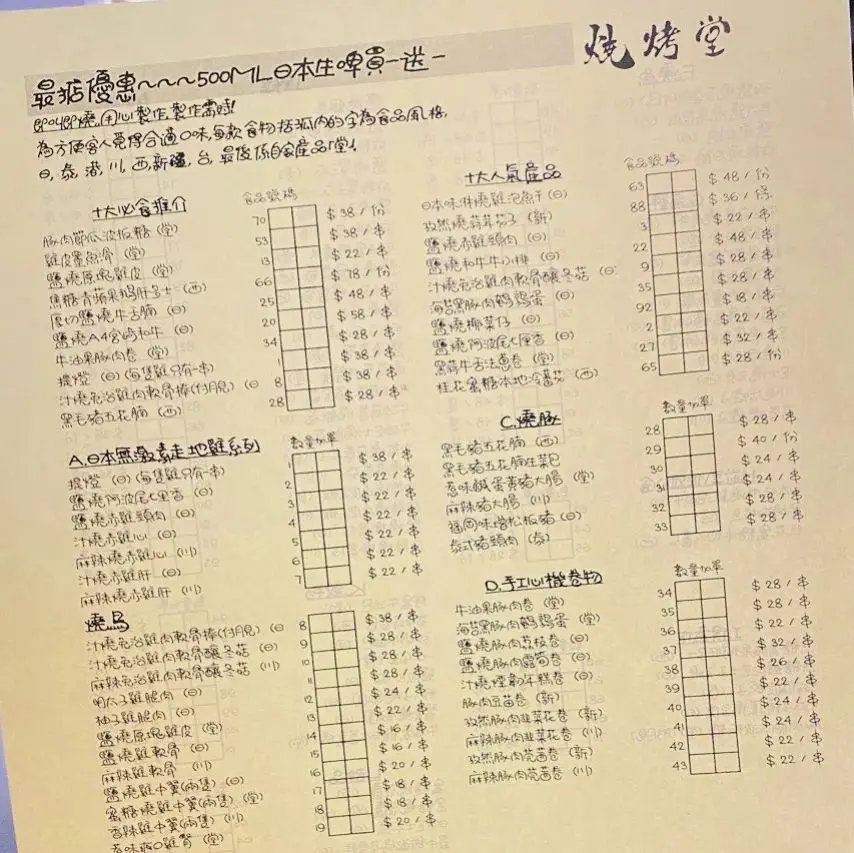 燒烤堂
最掂優惠~~~500ML日本生啤買一送一
即叫即燒,用心製作,製作需時!
為方便客人覓得合適口味,每款食物括弧內的字為食品風格,
日, 泰, 港, 川, 西, 新疆, 台, 最後係自家產品「堂」!
十大必食推介 食品號碼
豚肉節瓜波板糖 (堂) 70 $38/份
雞皮墨魚骨 (堂) 53 $38/串
鹽燒原塊雞皮 (堂) 13 $22/串
焦糖青蘋果鵝肝多士 (西) 66 $78/份
厚切鹽燒牛舌腩 (日) 25 $48/串
鹽燒A4宮崎和牛 (日) 20 $58/串
牛油果豚肉卷 (堂) 34 $28/串
提燈 (日) (每隻雞只有一串) 1 $38/串
汁燒免治雞肉軟骨棒(付月見) (日 8 $38/串
黑毛豬五花腩 (西) 28 $28/串
A.日本無激素走地雞系列 數量 加單
提燈 (日) (每隻雞只有一串) 1 $38/串
鹽燒阿波尾七里香 (日) 2 $22/串
鹽燒赤雞頸肉 (日) 3 $22/串
汁燒赤雞心 (日) 4 $22/串
麻辣燒赤雞心 (川) 5 $22/串
汁燒赤雞肝 (日) 6 $22/串
麻辣燒赤雞肝 (川) 7 $22/串
燒鳥
汁燒免治雞肉軟骨棒(付月見) (日 8 $38/串
汁燒免治雞肉軟骨釀冬菇 (日) 9 $28/串
麻辣免治雞肉軟骨釀冬菇 (川) 10 $28/串
明太子雞腿肉 (日) 11 $28/串
柚子雞腿肉 (日) 12 $24/串
鹽燒原塊雞皮 (堂) 13 $22/串
鹽燒雞軟骨 (日) 14 $16/串
麻辣雞軟骨 (川) 15 $16/串
鹽燒雞中翼(兩隻) (日) 16 $20/串
蜜糖燒雞中翼(兩隻) (堂) 17 $18/串
香辣雞中翼(兩隻) (川) 18 $18/串
雞腎 (堂) 19 $20/串
十大人氣產品 食品號碼
日本味淋燒雞泡魚干 (日) 63 $48/份
孜然燒蒜茸茄子 (新) 88 $36/條
鹽燒赤雞頸肉 (日) 3 $22/串
鹽燒和牛牛小排 (日) 22 $48/串
汁燒免治雞肉軟骨釀冬菇 (日 9 $28/串
海苔黑豚肉鵪鶉蛋 (堂) 35 $28/串
鹽燒椰菜仔 (日) 92 $18/串
鹽燒阿波尾七里香 (日) 2 $22/串
黑蒜牛舌法蔥卷 (堂) 27 $32/串
桂花蜜糖本地冷蕃茄 (西) 65 $28/份
C.燒豚 數量 加單
黑毛豬五花腩 (西) 28 $28/串
黑毛豬五花腩生菜包 29 $40/份
惹味鹹蛋黃豬大腸 (堂) 30 $24/串
麻辣豬大腸 (川) 31 $24/串
福岡味噌松板豬 (日) 32 $28/串
泰式豬頸肉 (泰) 33 $28/串
D.手工心機卷物 數量 加單
牛油果豚肉卷 (堂) 34 $28/串
海苔黑豚肉鵪鶉蛋 (堂) 35 $28/串
鹽燒豚肉荔枝卷 (日) 36 $22/串
鹽燒豚肉露筍卷 (日) 37 $32/串
汁燒煙韌年糕卷 (日) 38 $26/串
豚肉豆苗卷 (新) 39 $22/串
孜然豚肉韮菜花卷 (新) 40 $24/串
麻辣豚肉韮菜花卷 (川) 41 $24/串
孜然豚肉莞茜卷 (新) 42 $22/串
麻辣豚肉莞茜卷 (川) 43 $22/串